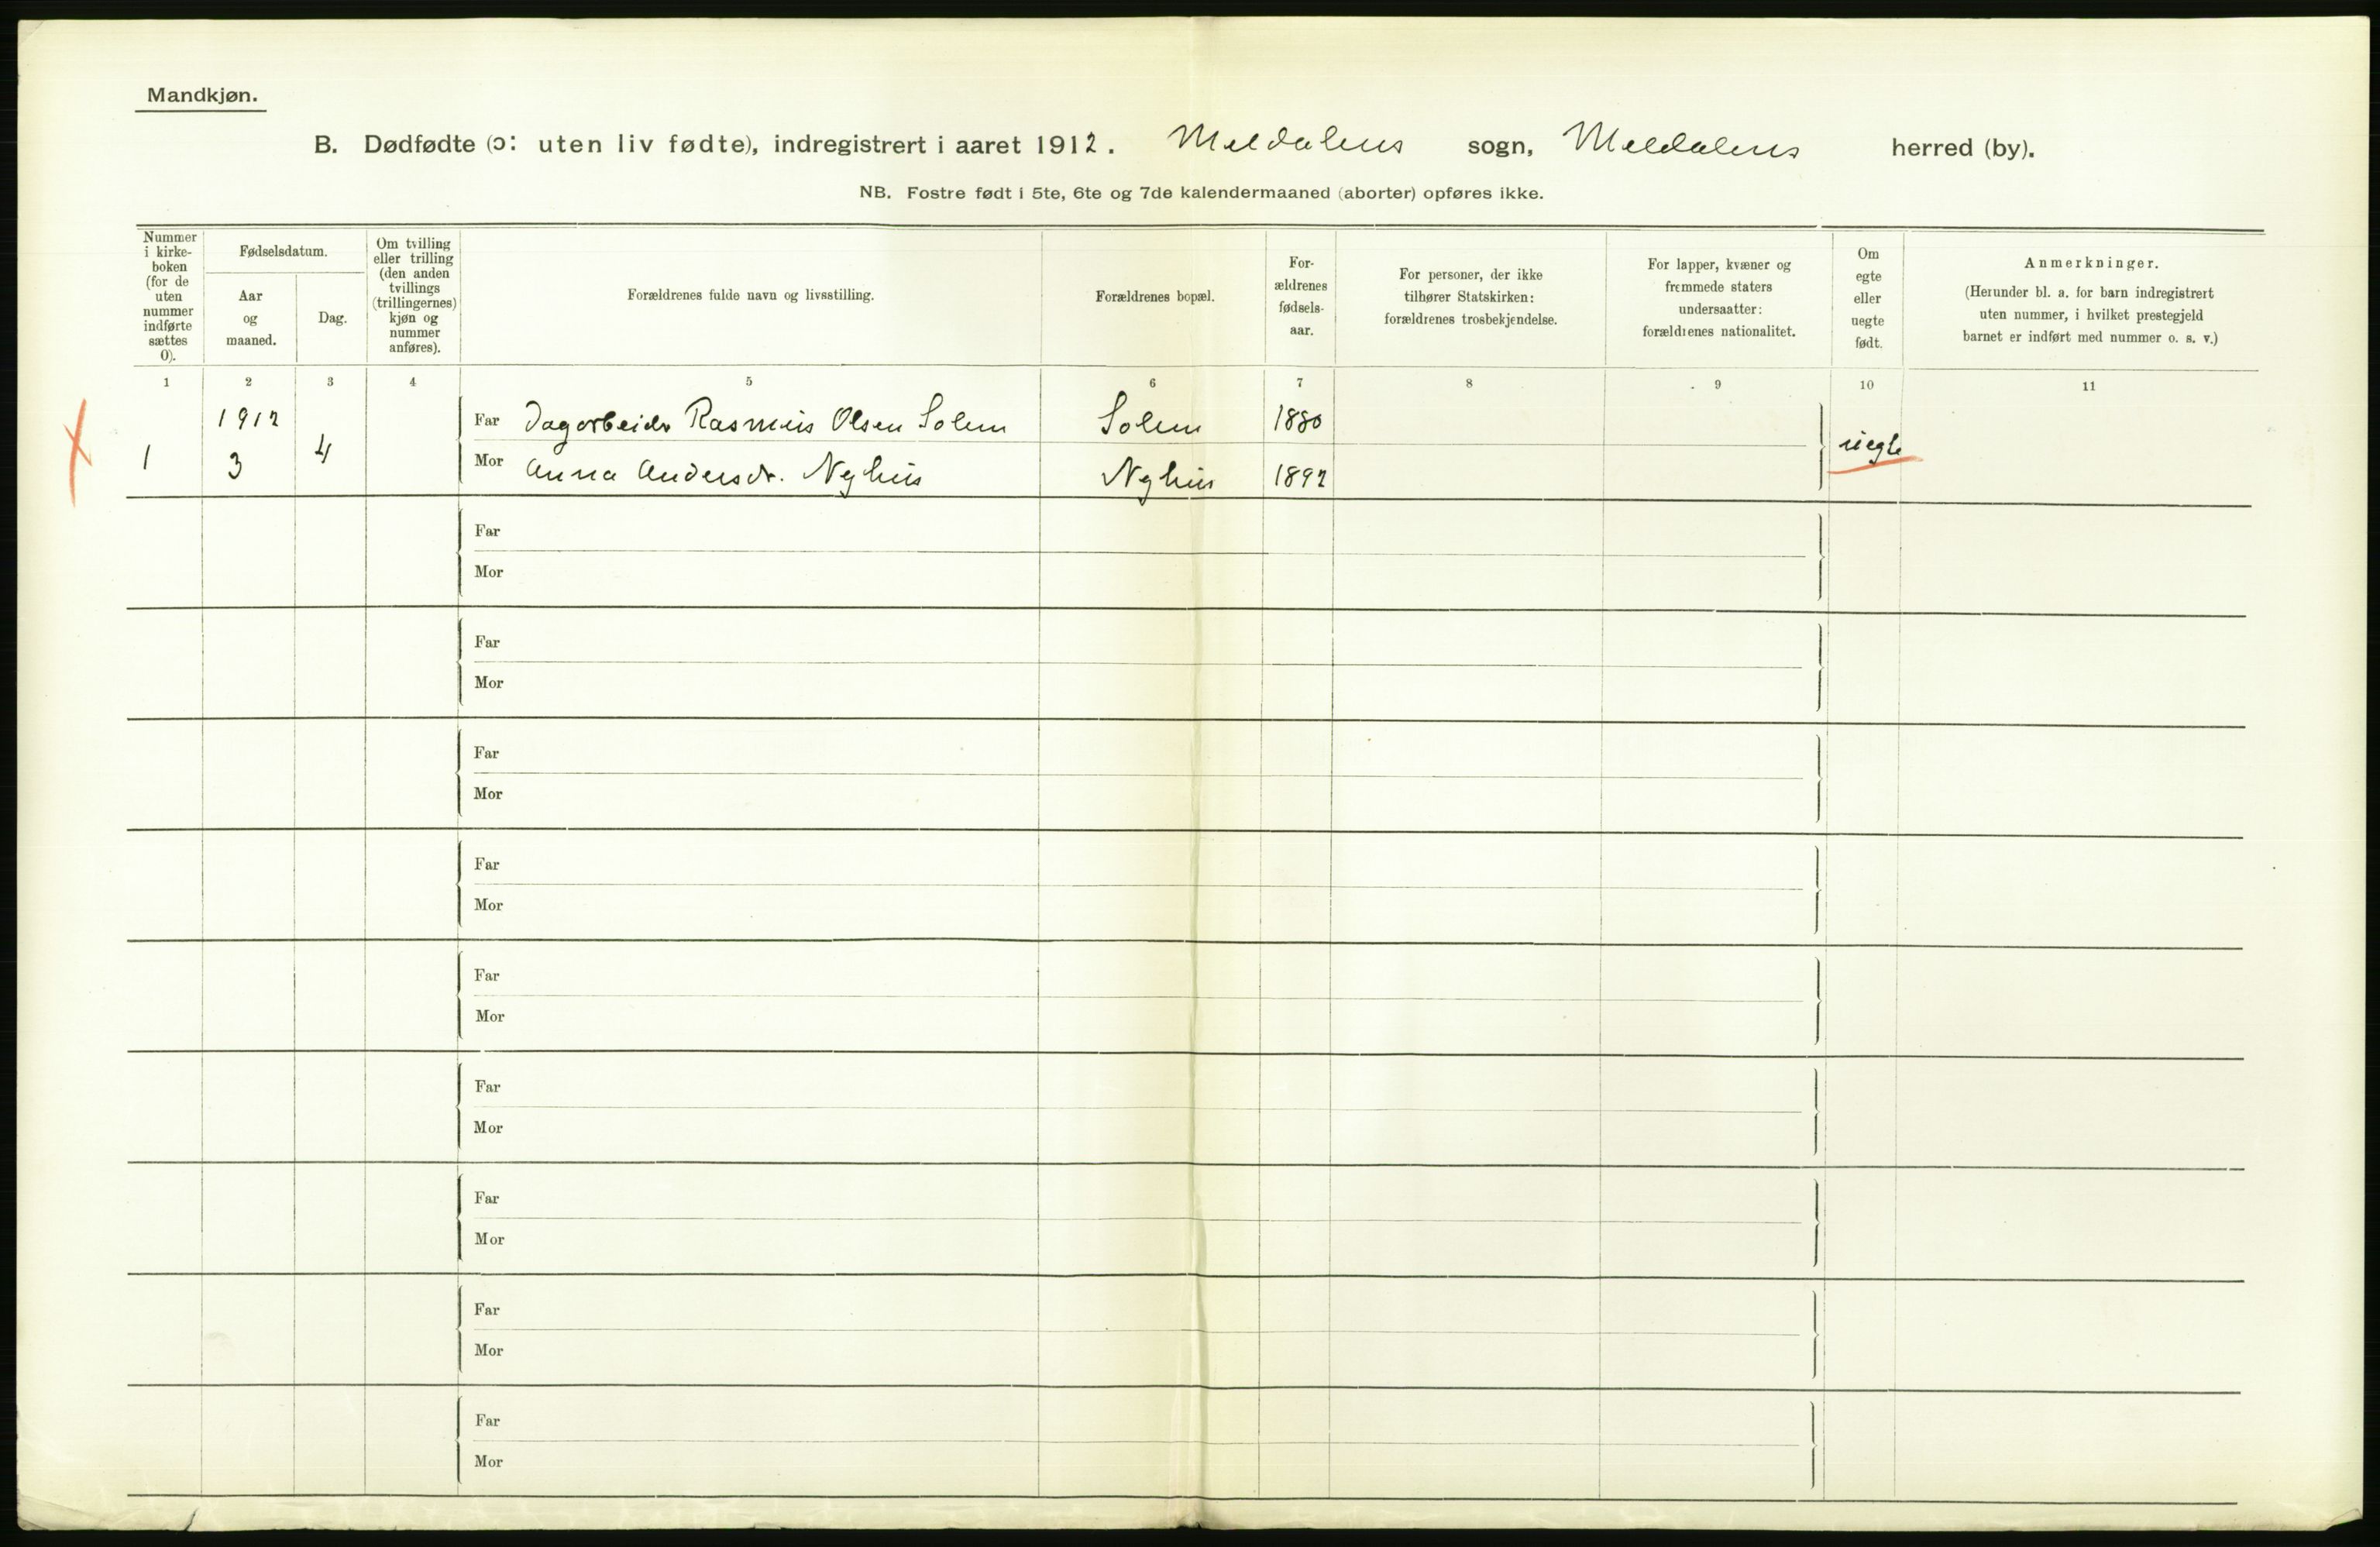 Mandkjøn.
B. Dødfødte (ɔ: uten liv fødte), indregistrert i aaret 1912. Meldalens sogn, Meldalens herred (by).
NB. Fostre født i 5te, 6te og 7de kalendermaaned (aborter) opføres ikke.
Nummer
i kirke-
boken
(for de
uten
nummer
indførte
sættes
0).
Fødselsdatum.
Aar
og
maaned.
Dag.
Om tvilling
eller trilling
(den anden
tvillings
(trillingernes)
kjøn og
nummer
anføres).
Forældrenes fulde navn og livsstilling.
Forældrenes bopæl.
For-
ældrenes
fødsels-
aar.
For personer, der ikke
tilhører Statskirken:
forældrenes trosbekjendelse.
For lapper, kvæner og
fremmede staters
undersaatter:
forældrenes nationalitet.
Om
egte
eller
uegte
født.
Anmerkninger.
(Herunder bl. a. for barn indregistrert
uten nummer, i hvilket prestegjeld
barnet er indført med nummer o. s. v.)
1 2 3 4 5 6 7 8 9 10 11
1912 Far Dagarbeider Rasmus Olsen Solem Solem 1880
1 3 4 uegte
Mor Anna Andersdr. Nyhus Nyhus 1892
Far
Mor
Far
Mor
Far
Mor
Far
Mor
Far
Mor
Far
Mor
Far
Mor
Far
Mor
Far
Mor